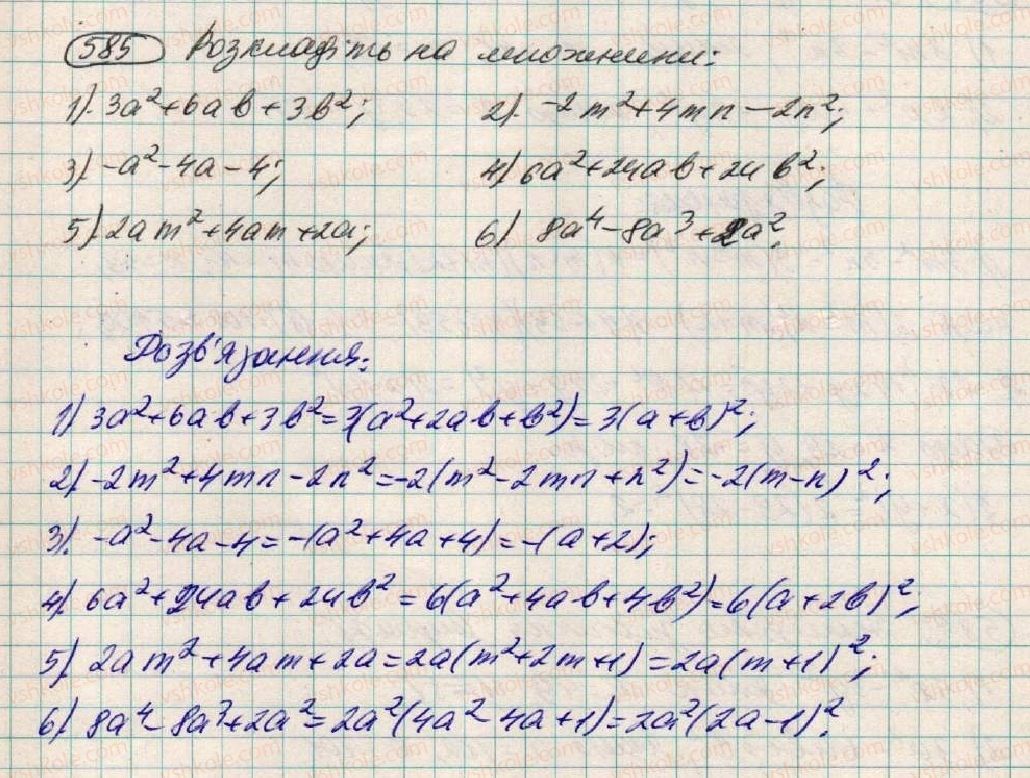 585 Розкладіть на множники:
1). 3a²+6ab+3b²; 2). -2m²+4mn-2n²;
3) -a²-4a-4; 4) 6a²+24ab+24b²;
5) 2am²+4am+2a; 6) 8a⁴-8a³+2a².
Розв'язання:
1) 3a²+6ab+3b²=3(a²+2ab+b²)=3(a+b)²;
2) -2m²+4mn-2n²=-2(m²-2mn+n²)=-2(m-n)²;
3). -a²-4a-4=-(a²+4a+4)=-(a+2);
4) 6a²+24ab+24b²=6(a²+4ab+4b²)=6(a+2b)²;
5) 2am²+4am+2a=2a(m²+2m+1)=2a(m+1)²;
6) 8a⁴-8a³+2a²=2a²(4a²-4a+1)=2a²(2a-1)².